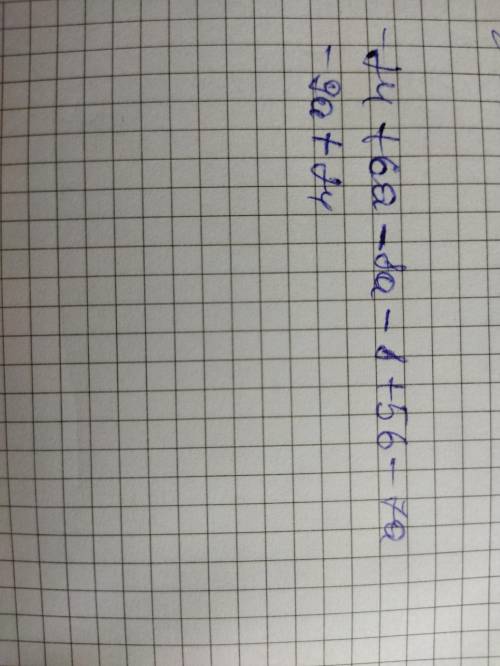 -24 + 6a - 8a - 8 + 56 - 7a
- 9a + 24